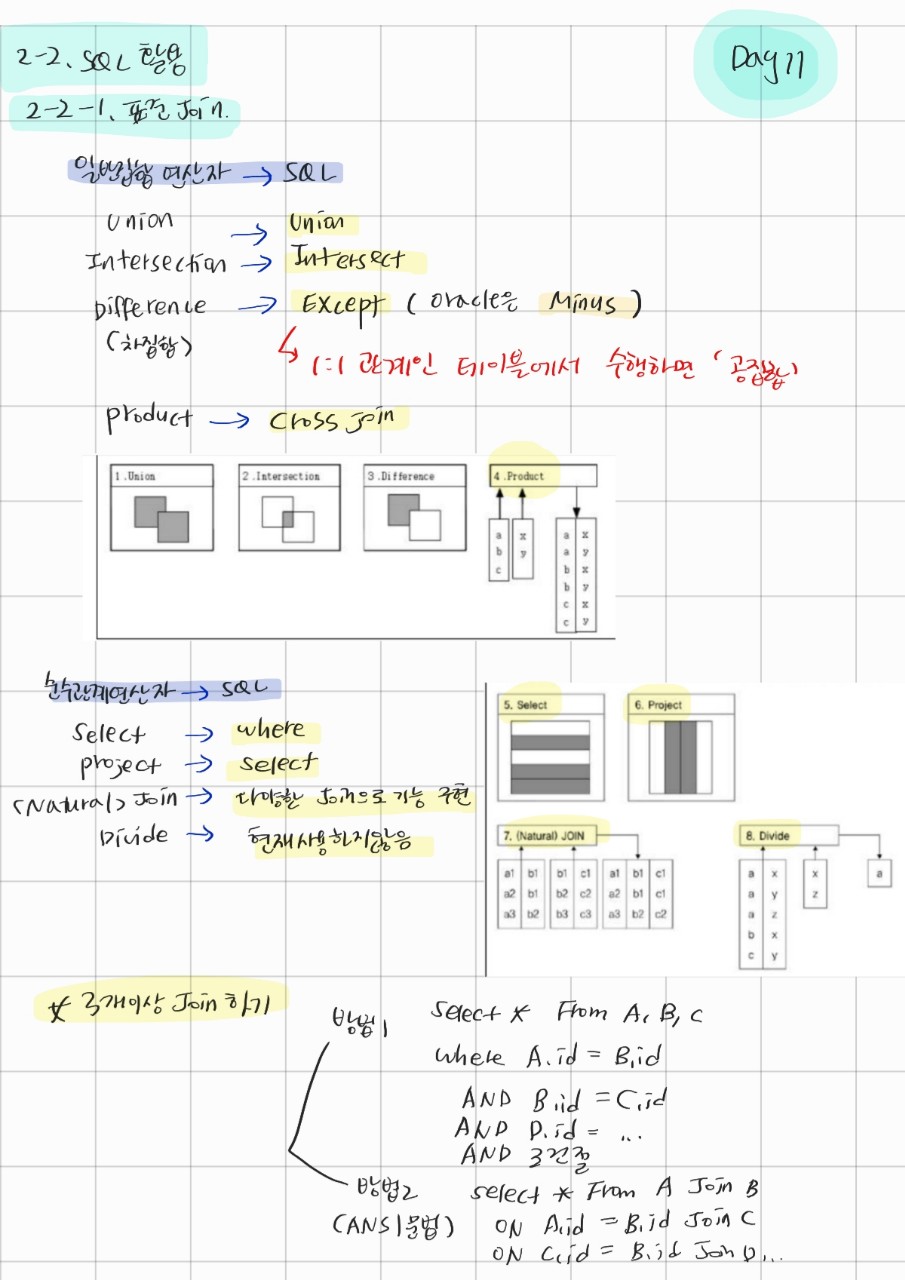 2-2. SQL 활용
Day 11
2-2-1. 표준 Join.
일반집합 연산자 → SQL
Union → Union
Intersection → Intersect
Difference → Except (Oracle은 Minus)
(차집합)
↳ 1:1 관계인 테이블에서 수행하면 '공집합'
product → Cross join
1.Union
2.Intersection
3.Difference
4.Product
a x a x
b y a y
c b x
b y
c x
c y
순수관계연산자 → SQL
Select → where
project → select
(Natural) Join → 다양한 Join으로 기능 구현
Divide → 현재사용하지않음
5. Select
6. Project
7. (Natural) JOIN
8. Divide
a1 b1 b1 c1 a1 b1 c1
a2 b1 b2 c2 a2 b1 c1
a3 b2 b3 c3 a3 b2 c2
a x x a
a y z
a z
b x
c y
* 3개이상 Join 하기
방법1 select * From A, B, C
where A.id = B.id
AND B.id = C.id
AND D.id = ...
AND 조건절
방법2 select * From A Join B
(ANSI문법) ON A.id = B.id Join C
ON C.id = B.id Join D...